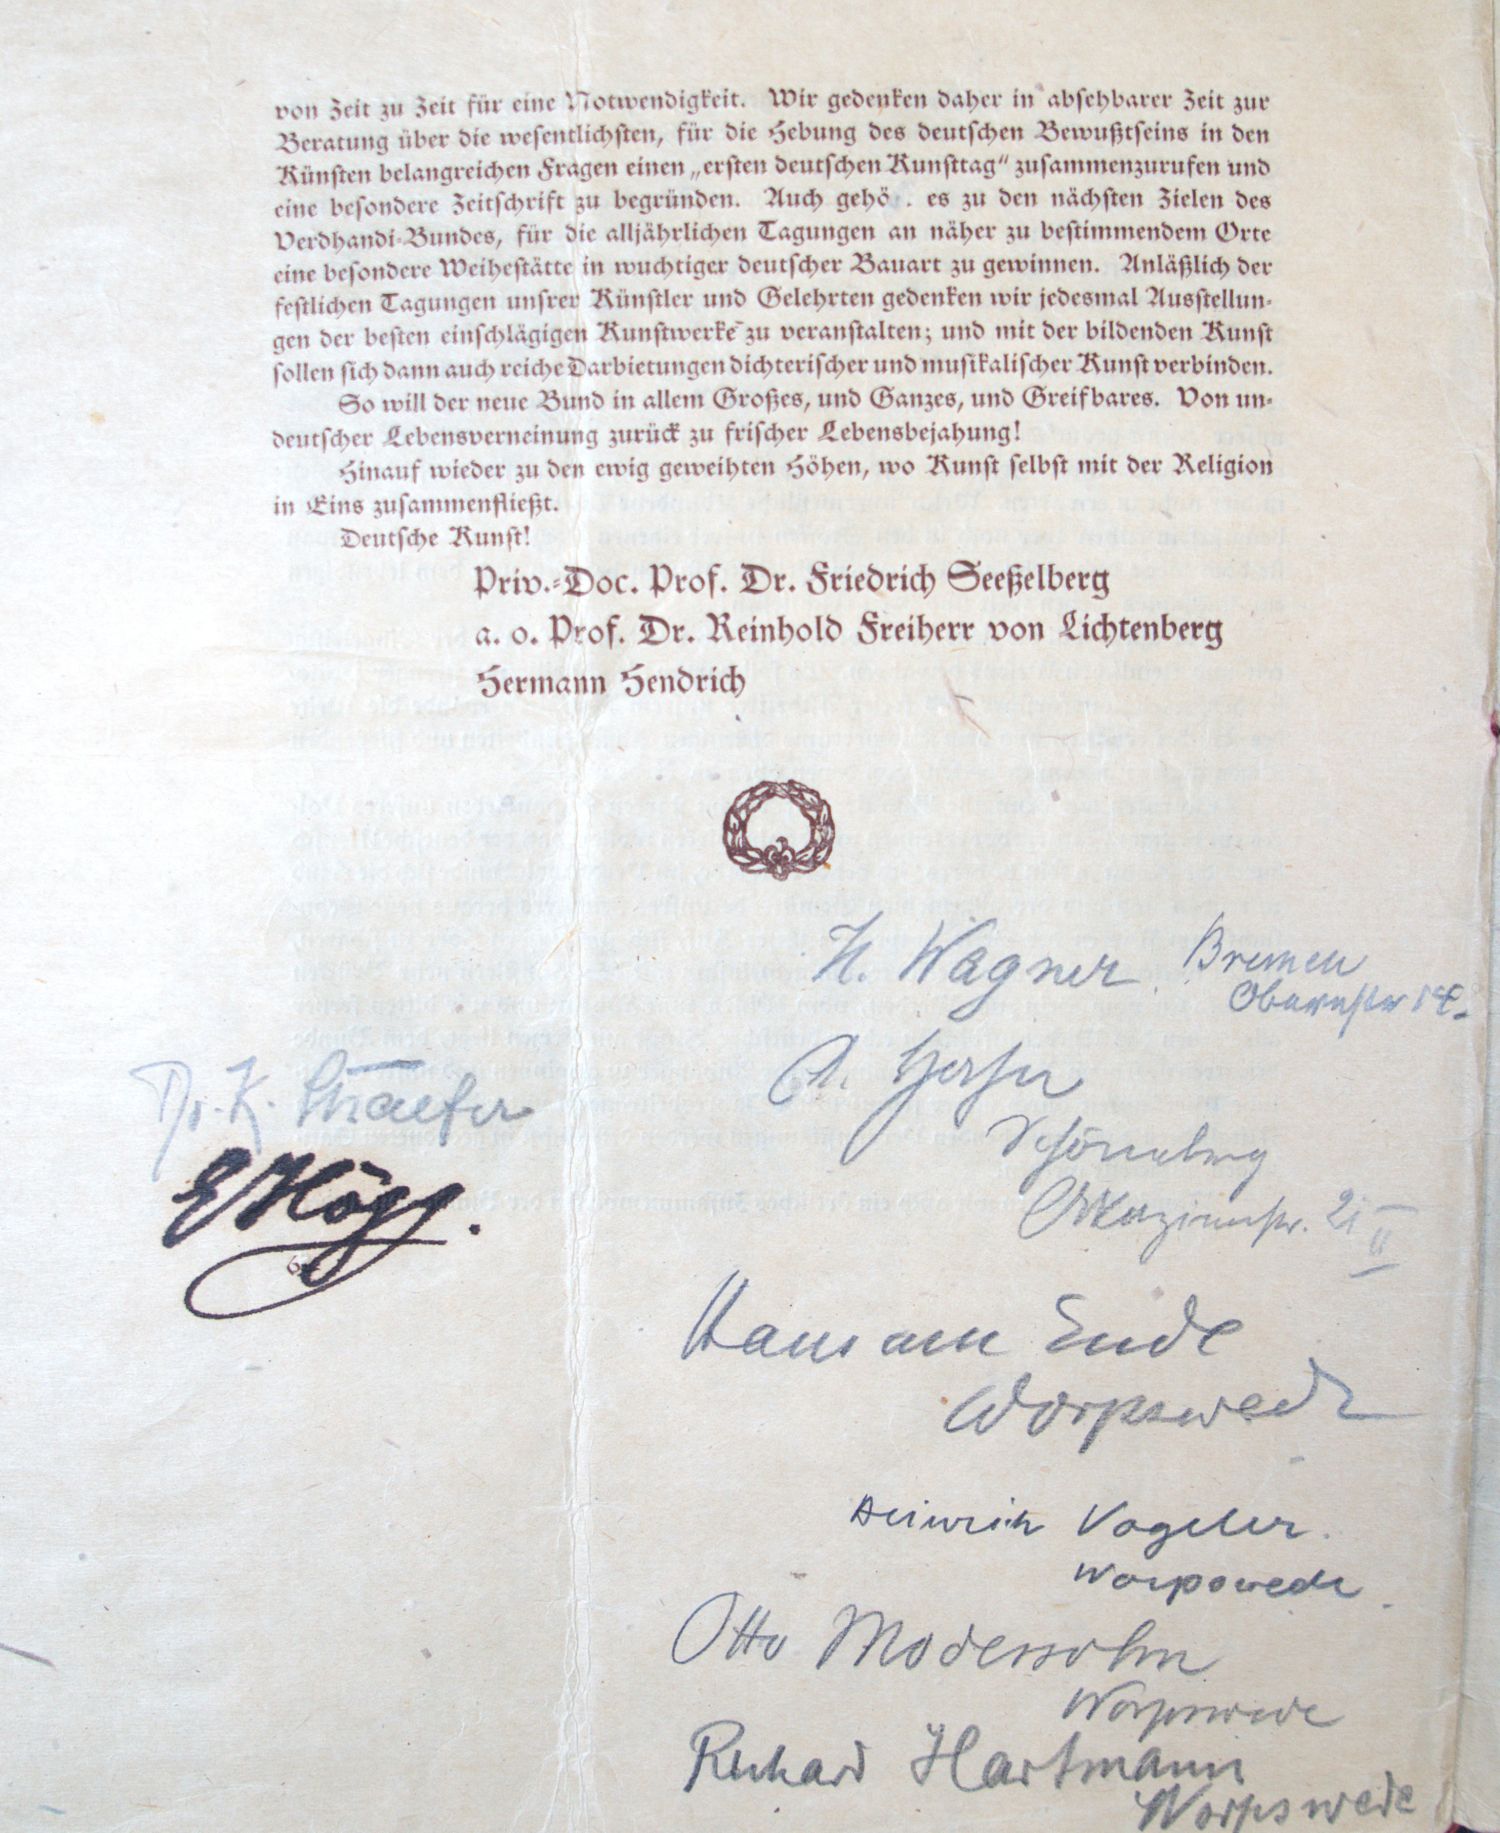 von Zeit zu Zeit für eine Notwendigkeit. Wir gedenken daher in absehbarer Zeit zur
Beratung über die wesentlichsten, für die Hebung des deutschen Bewußtseins in den
Künsten belangreichen Fragen einen „ersten deutschen Kunsttag“ zusammenzurufen und
eine besondere Zeitschrift zu begründen. Auch gehö . es zu den nächsten Zielen des
Verdhandi-Bundes, für die alljährlichen Tagungen an näher zu bestimmendem Orte
eine besondere Weihestätte in wuchtiger deutscher Bauart zu gewinnen. Anläßlich der
festlichen Tagungen unsrer Künstler und Gelehrten gedenken wir jedesmal Ausstellun-
gen der besten einschlägigen Kunstwerke zu veranstalten; und mit der bildenden Kunst
sollen sich dann auch reiche Darbietungen dichterischer und musikalischer Kunst verbinden.
So will der neue Bund in allem Großes, und Ganzes, und Greifbares. Von un-
deutscher Lebensverneinung zurück zu frischer Lebensbejahung!
Hinauf wieder zu den ewig geweihten Höhen, wo Kunst selbst mit der Religion
in Eins zusammenfließt.
Deutsche Kunst!
Priv.-Doc. Prof. Dr. Friedrich Seeßelberg
a. o. Prof. Dr. Reinhold Freiherr von Lichtenberg
Hermann Hendrich
H. Wagner. Bremen
Obernstr
Dr. K. Schaefer
E Högg.
A.
Schöneberg
Hans am Ende
Worpswede
Heinrich Vogeler.
Worpswede.
Otto Modersohn
Worpswede
Richard Hartmann
Worpswede